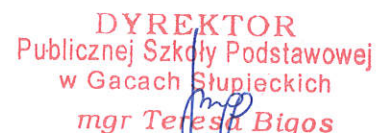 DYREKTOR
Publicznej Szkoły Podstawowej
w Gacach Słupieckich
mgr Teresa Bigos